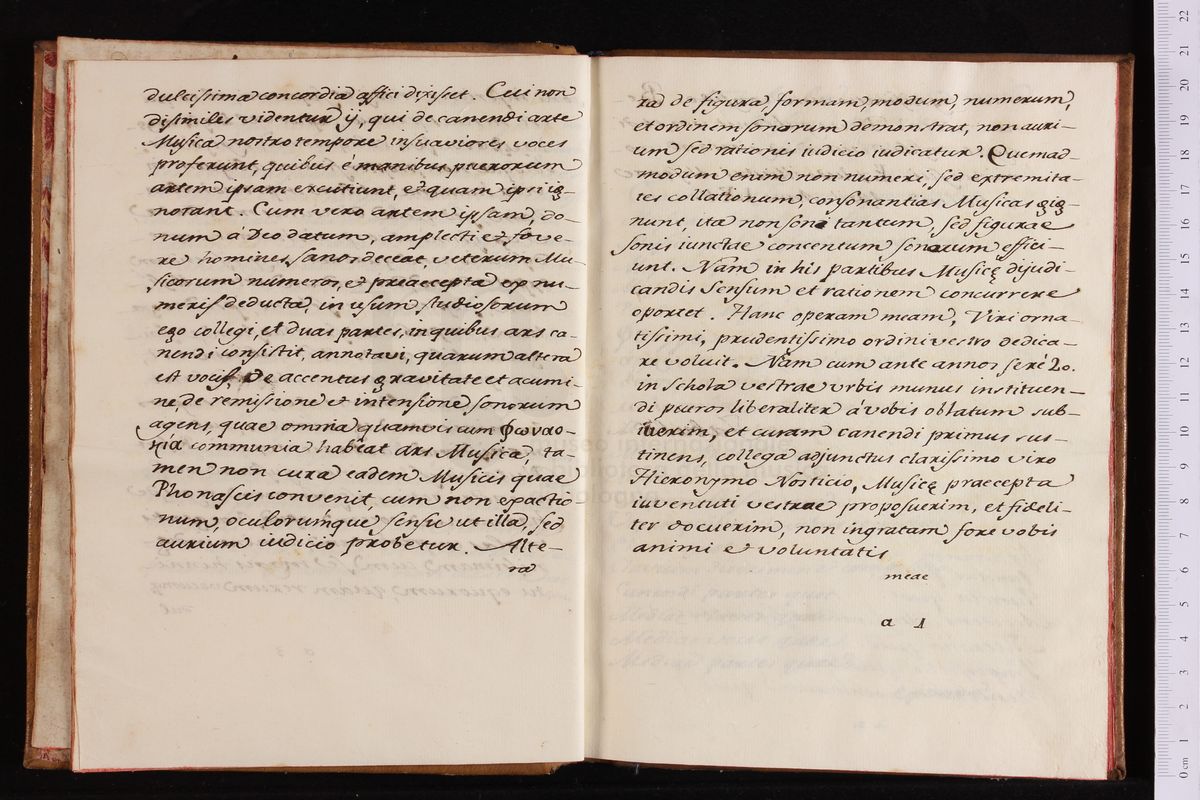 dulcissima concordia affici dixisset. Cui non
dissimiles videntur ÿ, qui de canendi arte
Musica nostro tempore insuaviores voces
proferunt, quibus è manibus puerorum
artem ipsam excutiunt, & quam ipsi ig-
norant. Cum vero artem ipsam, do-
num á Deo datum, amplecti et fove-
re homines sanos deceat, veterum Mu-
sicorum numeros, et praeaecepta ex nu-
meris deducta, in usum studiosorum
ego collegi, et duas partes, in quibus ars ca-
nendi consistit, annotavi, quarum altera
est vocis. De accentus gravitate et acumi-
ne, de remissione et intensione sonorum
agens, quae omnia quamvis cum φωνασ-
κία communia habeat ars Musica, ta-
men non cura eadem Musicis quae
Phonascis convenit, cum non epactio-
num, oculorumque sensu ut illa, sed
aurium iudicio probetur. Alte-
ra
ra de figura, formam, modum, numerum,
et ordinem sonorum demonstrat, non auri-
um sed rationis iudicio iudicatur. Quemad-
modum enim non numeri, sed extremita-
tes collationum, consonantias Musicas gig-
nunt, ita non soni tantum, sed figurae
sonis iunctae concentum sonorum effici-
unt. Nam in his partibus Musicę dijudi-
candis sensum et rationem concurrere
oportet. Hanc operam meam, Viri orna-
tissimi, prudentissimo ordini vestro dedica-
re volui. Nam cum ante annos ferè 20.
in schola vestrae urbis munus instituen-
di pueros liberaliter a vobis oblatum sub-
iverim, et curam canendi primus sus-
tinens, collega adjunctus clarissimo viro
Hieronymo Nosticio, Musicę praecepta
iuventuti vestrae proposuerim, et fideli-
ter docuerim, non ingratam fore vobis
animi et voluntatis
meae
a 1